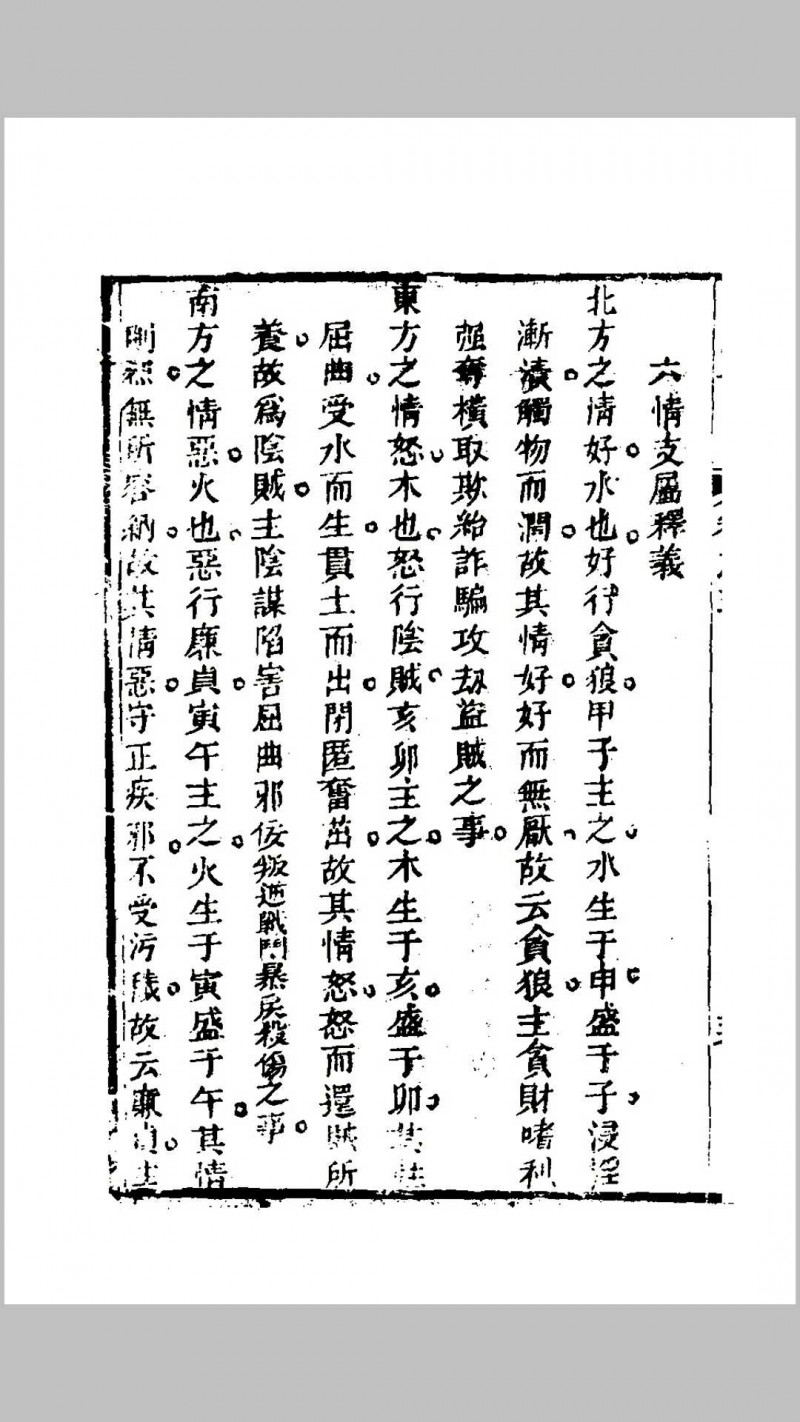 六情支屬釋義
北方之情好水也好行貪狼甲子主之水生于申盛于子浸淫
漸漬觸物而潤故其情好好而無厭故云貪狼主貪財嗜利
强奪橫取欺紿詐騙攻刼盜賊之事
東方之情怒木也怒行陰賊亥卯主之木生于亥盛于卯其性
屈曲受水而生貫土而出閉匿奮茁故其情怒怒而還賊所
養故爲陰賊主陰謀陷害屈曲邪佞叛逆戰鬥暴戾殺傷之事
南方之情惡火也惡行廉貞寅午主之火生于寅盛于午其情
無所容納故其情惡守正疾邪不受污穢故云廉貞主